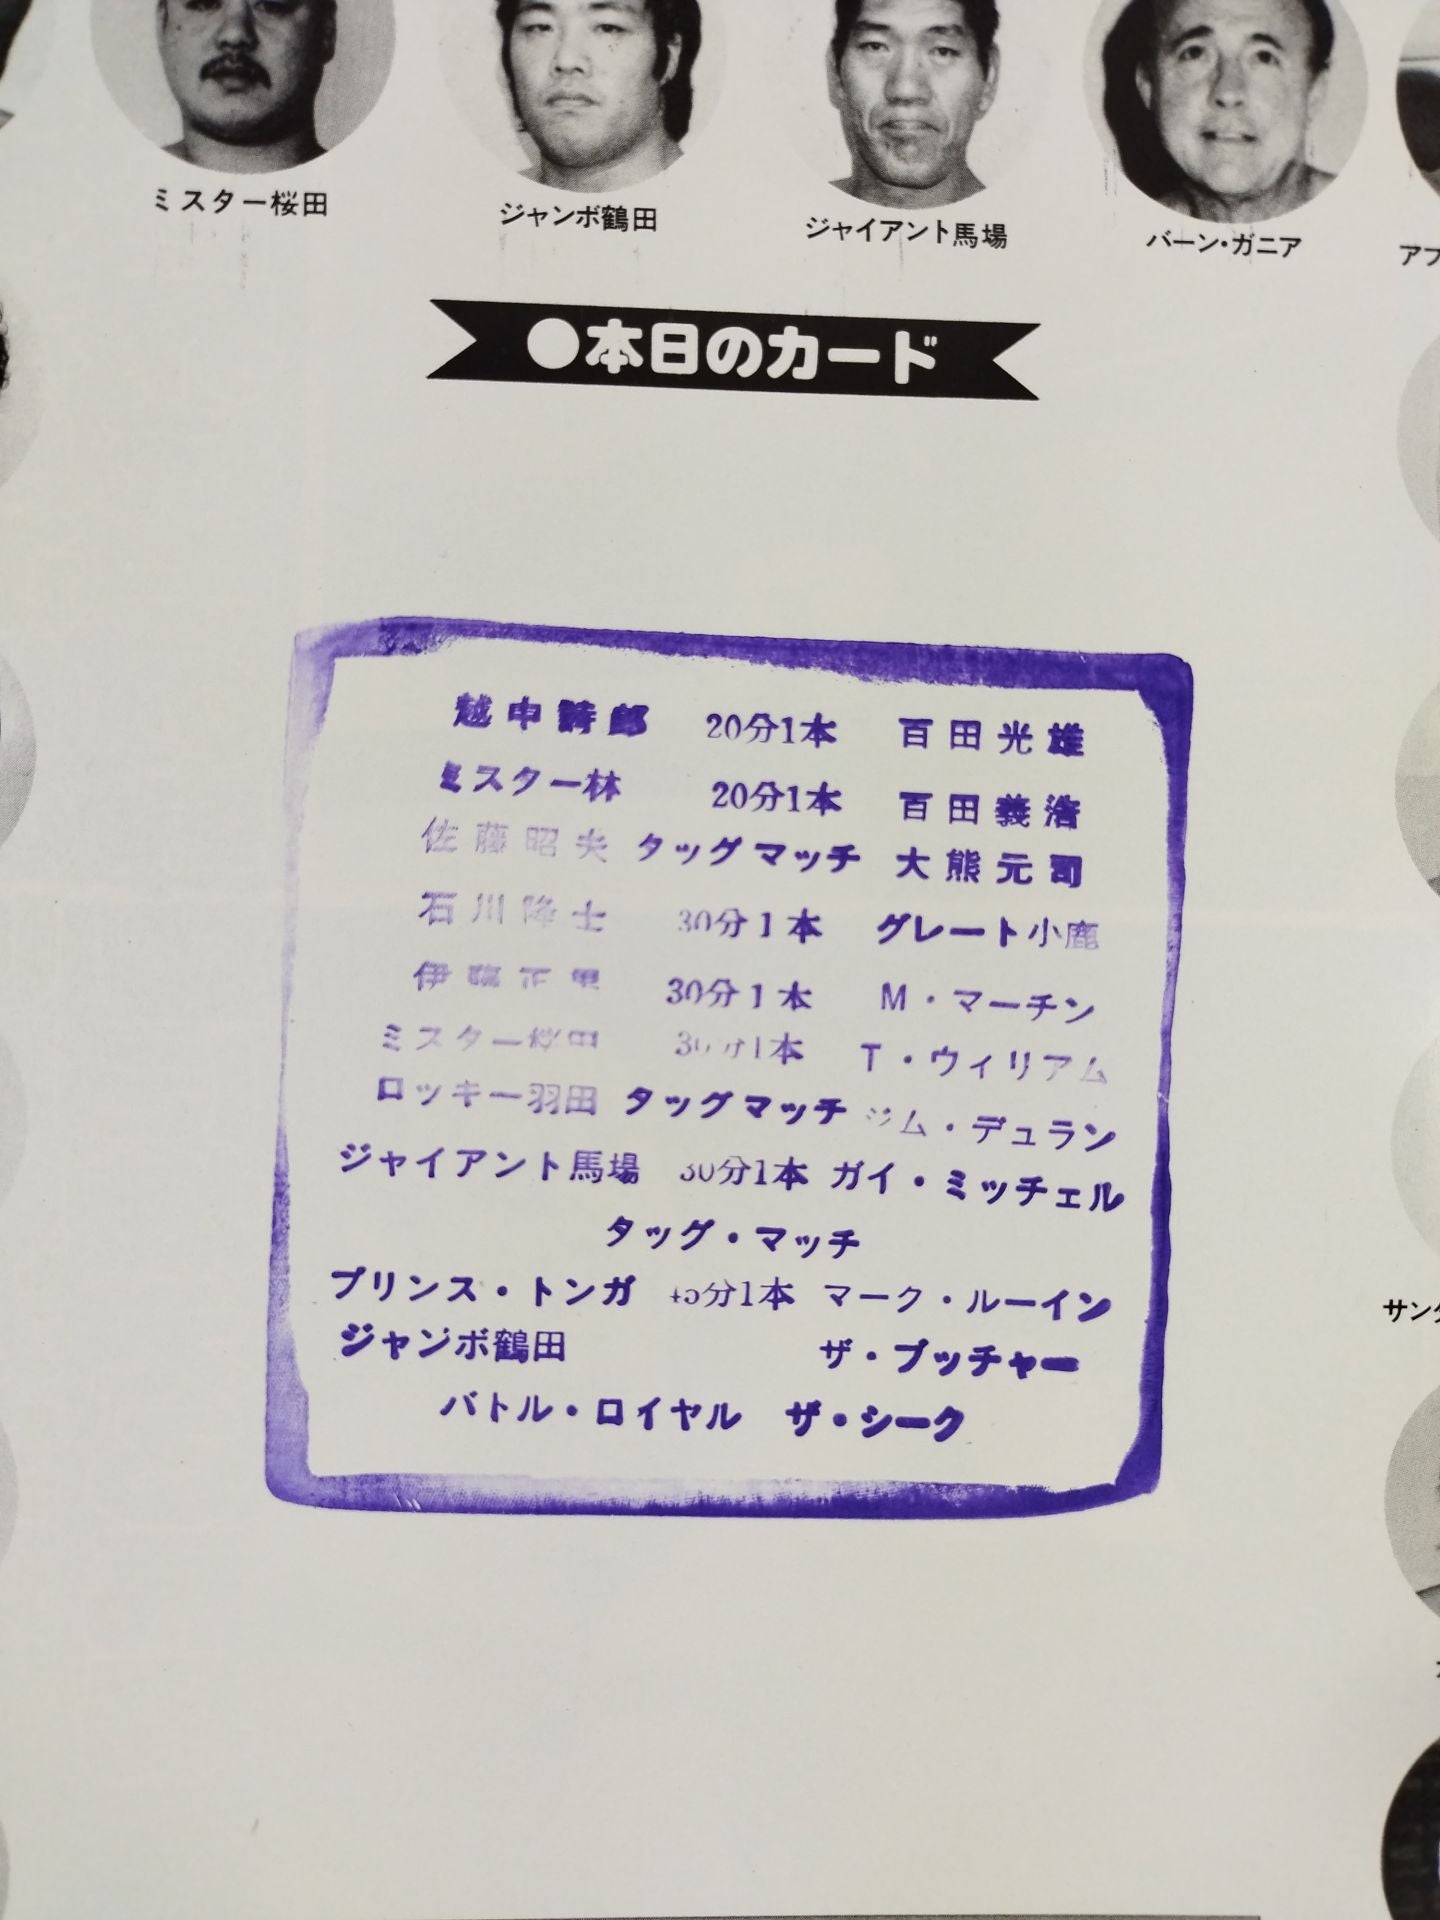 ミスター桜田 ジャンボ鶴田 ジャイアント馬場 バーン・ガニア
●本日のカード
越中詩郎 20分1本 百田光雄
ミスター林 20分1本 百田義浩
佐藤昭夫 タッグマッチ 大熊元司
石川隆士 30分1本 グレート小鹿
伊藤正男 30分1本 M・マーチン
ミスター桜田 30分1本 T・ウィリアム
ロッキー羽田 タッグマッチ ジム・デュラン
ジャイアント馬場 30分1本 ガイ・ミッチェル
タッグ・マッチ
プリンス・トンガ 45分1本 マーク・ルーイン
ジャンボ鶴田 ザ・ブッチャー
バトル・ロイヤル ザ・シーク